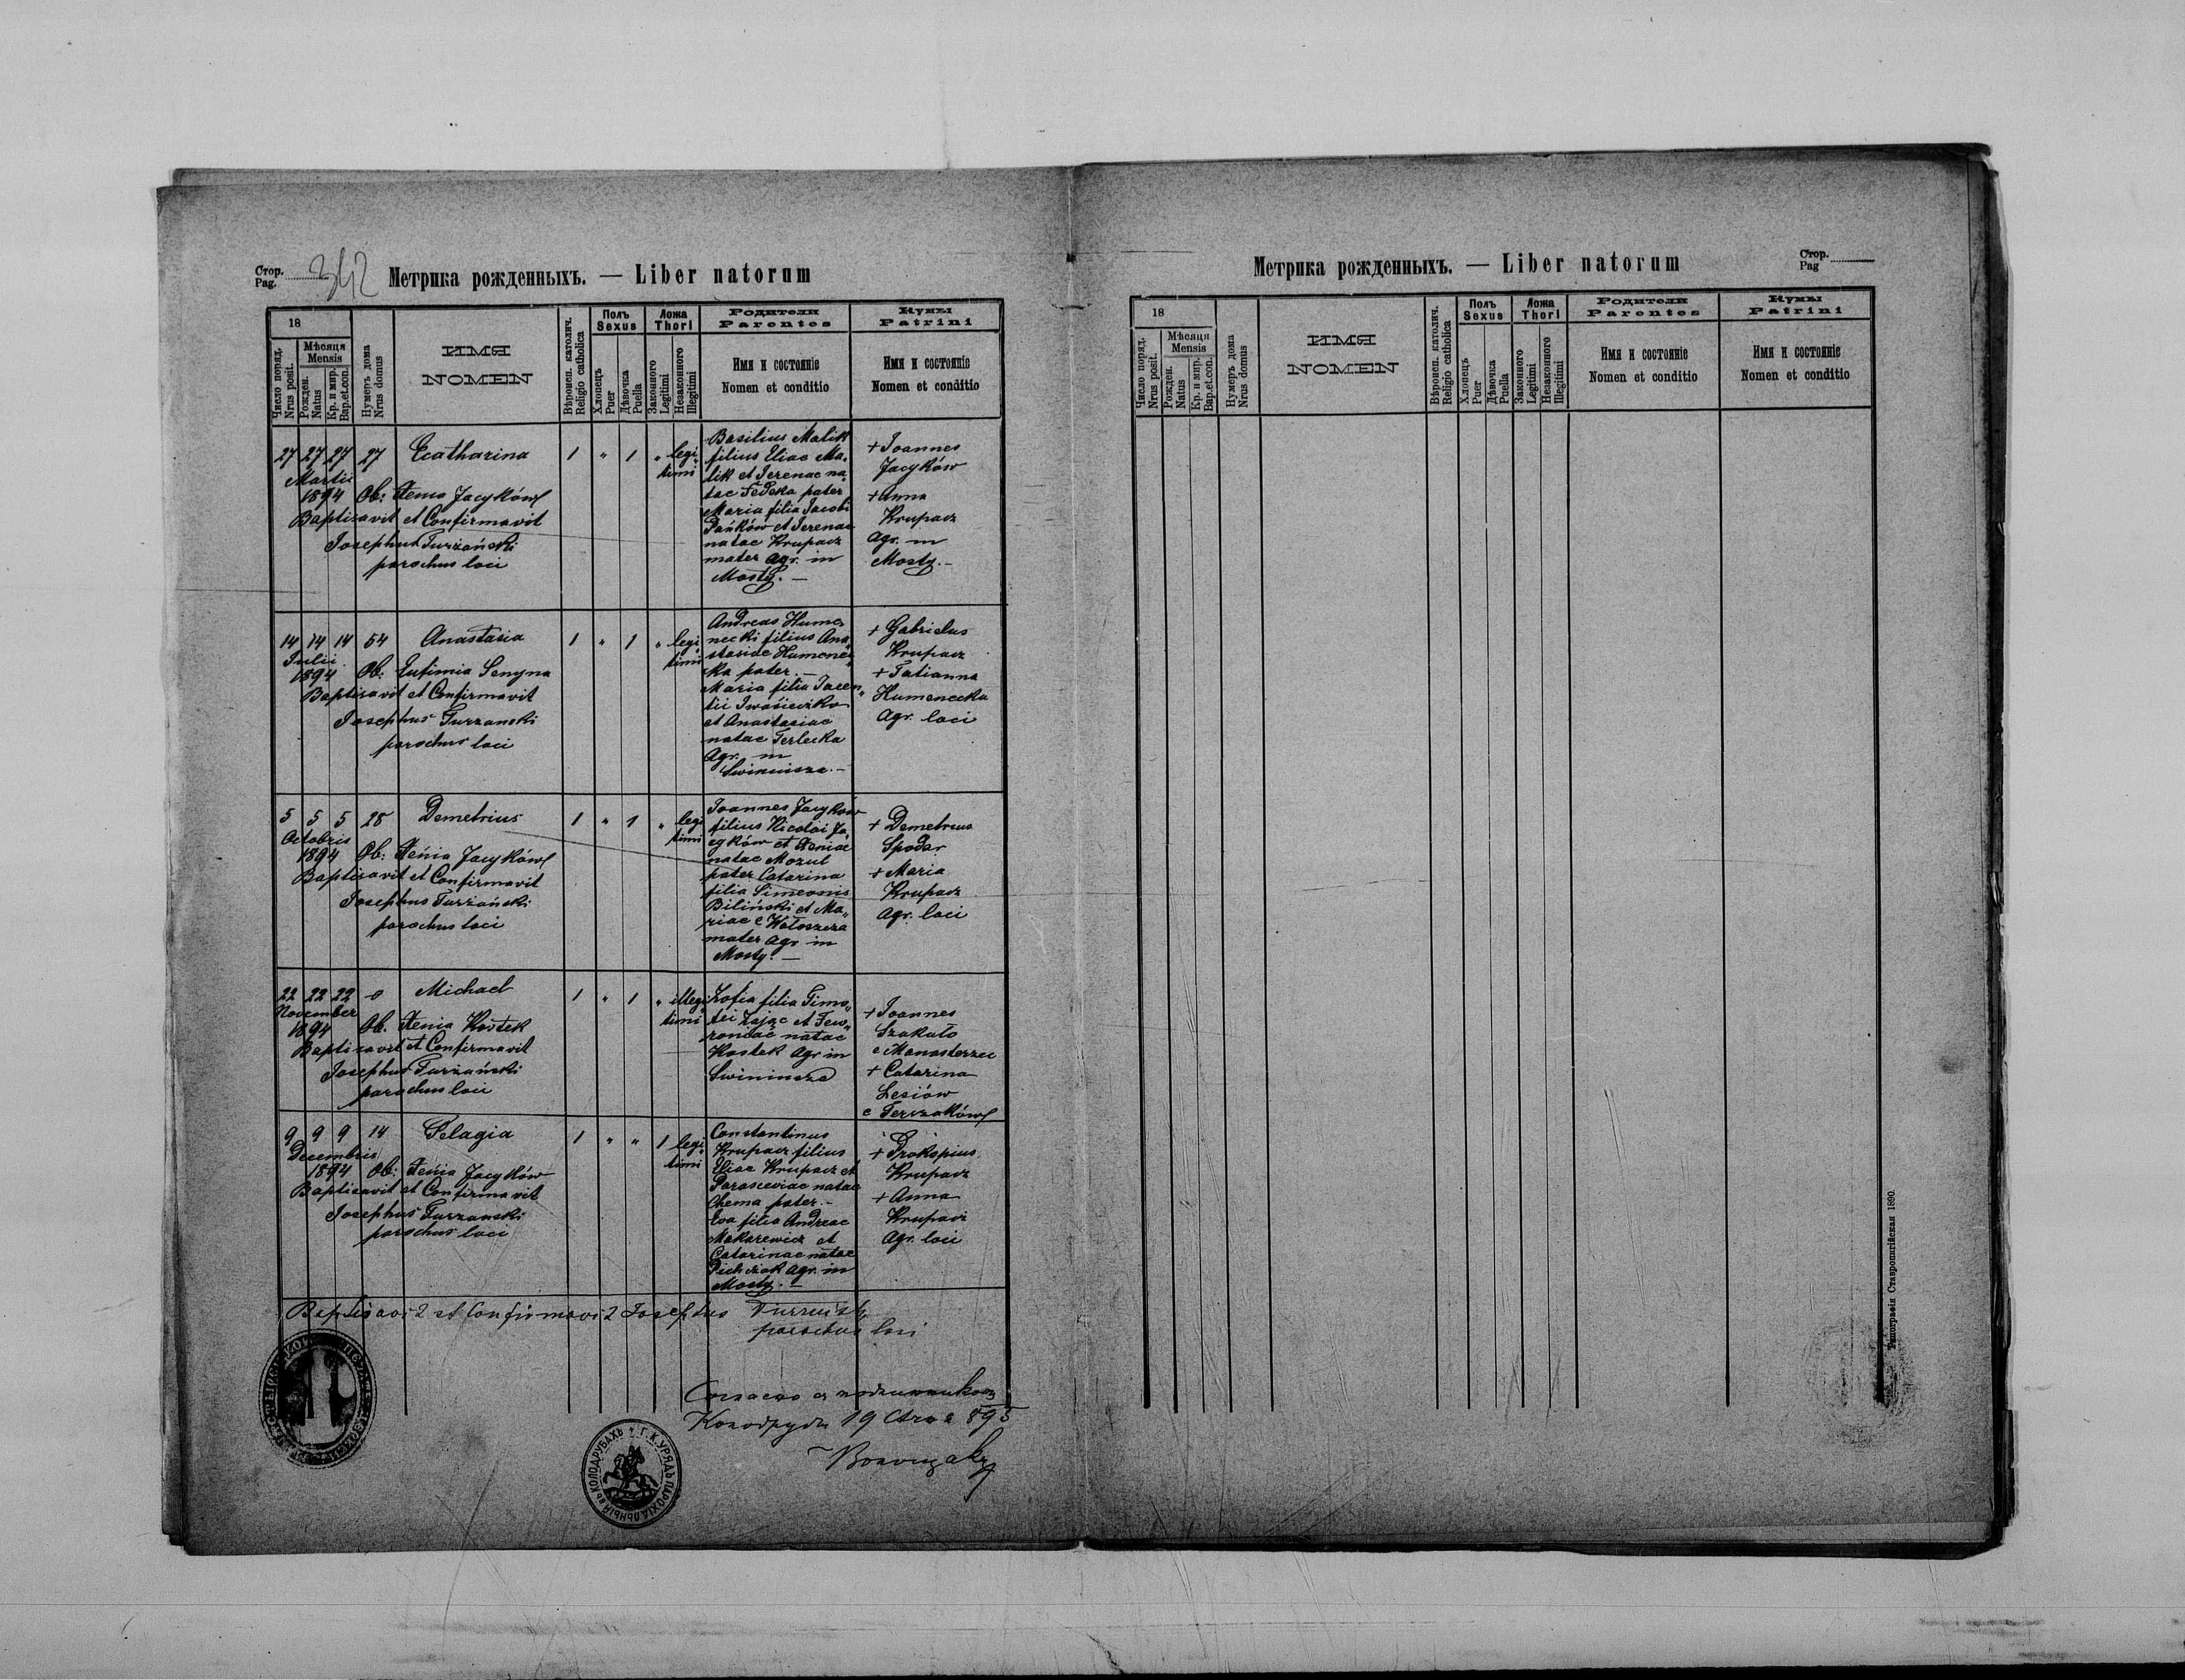 Стор.
Pag. 342
Метрика рожденныхъ. — Liber natorum
18
Число поряд.
Nrus posit.
Мѣсяця
Mensis
Рожден.
Natus
Кр. и мир.
Bap.et.con.
Нумеръ дома
Nrus domus
ИМЯ
NOMEN
Вѣроисп. католич.
Religio catholica
Полъ
Sexus
Хлопецъ
Puer
Дѣвочка
Puella
Ложа
Thori
Законного
Legitimi
Незаконного
Illegitimi
Родители
Parentes
Имя и состояніе
Nomen et conditio
Кумы
Patrini
Имя и состояніе
Nomen et conditio
27 27 27 27 Ecatharina 1 " 1 " legi
timi
Martii
1894 Ob: Xenia Jacyków
Baptisavit et Confirmavit
Josephus Turzański
parochus loci
Basilius Malik
filius Eliae Ma„
lik et Irenae na„
tae Fedeka pater
Maria filia Jacobi
Pańków et Irenae
natae Krupacz
mater agr. in
Mosty. —
+ Joannes
Jacyków
+ Anna
Krupacz
Agr. in
Mosty. —
14 14 14 54 Anastasia 1 " 1 " legi
timi
Julii
1894 Ob: Eufimia Senyna
Baptisavit et Confirmavit
Josephus Turzanski
parochus loci
Andreas Hume„
necki filius Ana„
stasiae Humenec„
ka pater. —
Maria filia Jacen„
tii Iwasieczko
et Anastasiae
natae Terlecka
Agr. in
Swiniusza. —
+ Gabrielus
Krupacz
+ Tatianna
Humenecka
Agr. loci
5 5 5 28 Demetrius 1 " 1 " legi
timi
Octobris
1894 Ob: Xenia Jacyków
Baptisavit et Confirmavit
Josephus Turzański
parochus loci
Joannes Jacyków
filius Nicolai Ja„
cyków et Xeniae
natae Mozul
pater Catarina
filia Simeonis
Biliński et Ma„
riae e Wołoszcza
mater agr in
Mosty. —
+ Demetrius
Spodar
+ Maria
Krupacz
Agr. loci
22 22 22 -0 Michael 1 " 1 " illegi
timi
November
1894 Ob. Xenia Kostek
Baptisavit et Confirmavit
Josephus Turzański
parochus loci
Zofia filia Timo„
tei Zając et Few„
roniae natae
Kostek Agr in
Swiniusza
+ Joannes
Szakało
e Manasterzec
+ Catarina
Lesiów
e Terszaków
9 9 9 14 Pelagia 1 " " 1 legi
timi
Decembris
1894 Ob: Xenia Jacyków
Baptisavit et Confirmavit
Josephus Turzanski
parochus loci
Constantinus
Krupacz filius
Eliae Krupacz et
Parasceviae natae
Chema pater. —
Eva filia Andreae
Makarewicz et
Catarinae natae
Agr. in
Mosty. —
+ Prokopius
Krupacz
+ Anna
Krupacz
Agr. loci
Baptisavit et Confirmavit Josephus Turzański
parochus loci
Колодрубы 19 895
Г. К. УРЯДЪ ПАРОХІАЛЬНЫЙ въ КОЛОДРУБАХЪ
Метрика рожденныхъ. — Liber natorum
Стор.
Pag
18
Число поряд.
Nrus posit.
Мѣсяця
Mensis
Рожден.
Natus
Кр. и мир.
Bap.et.con.
Нумеръ дома
Nrus domus
ИМЯ
NOMEN
Вѣроисп. католич.
Religio catholica
Полъ
Sexus
Хлопецъ
Puer
Дѣвочка
Puella
Ложа
Thori
Законного
Legitimi
Незаконного
Illegitimi
Родители
Parentes
Имя и состояніе
Nomen et conditio
Кумы
Patrini
Имя и состояніе
Nomen et conditio
Типографія Ставропигійская 1890.